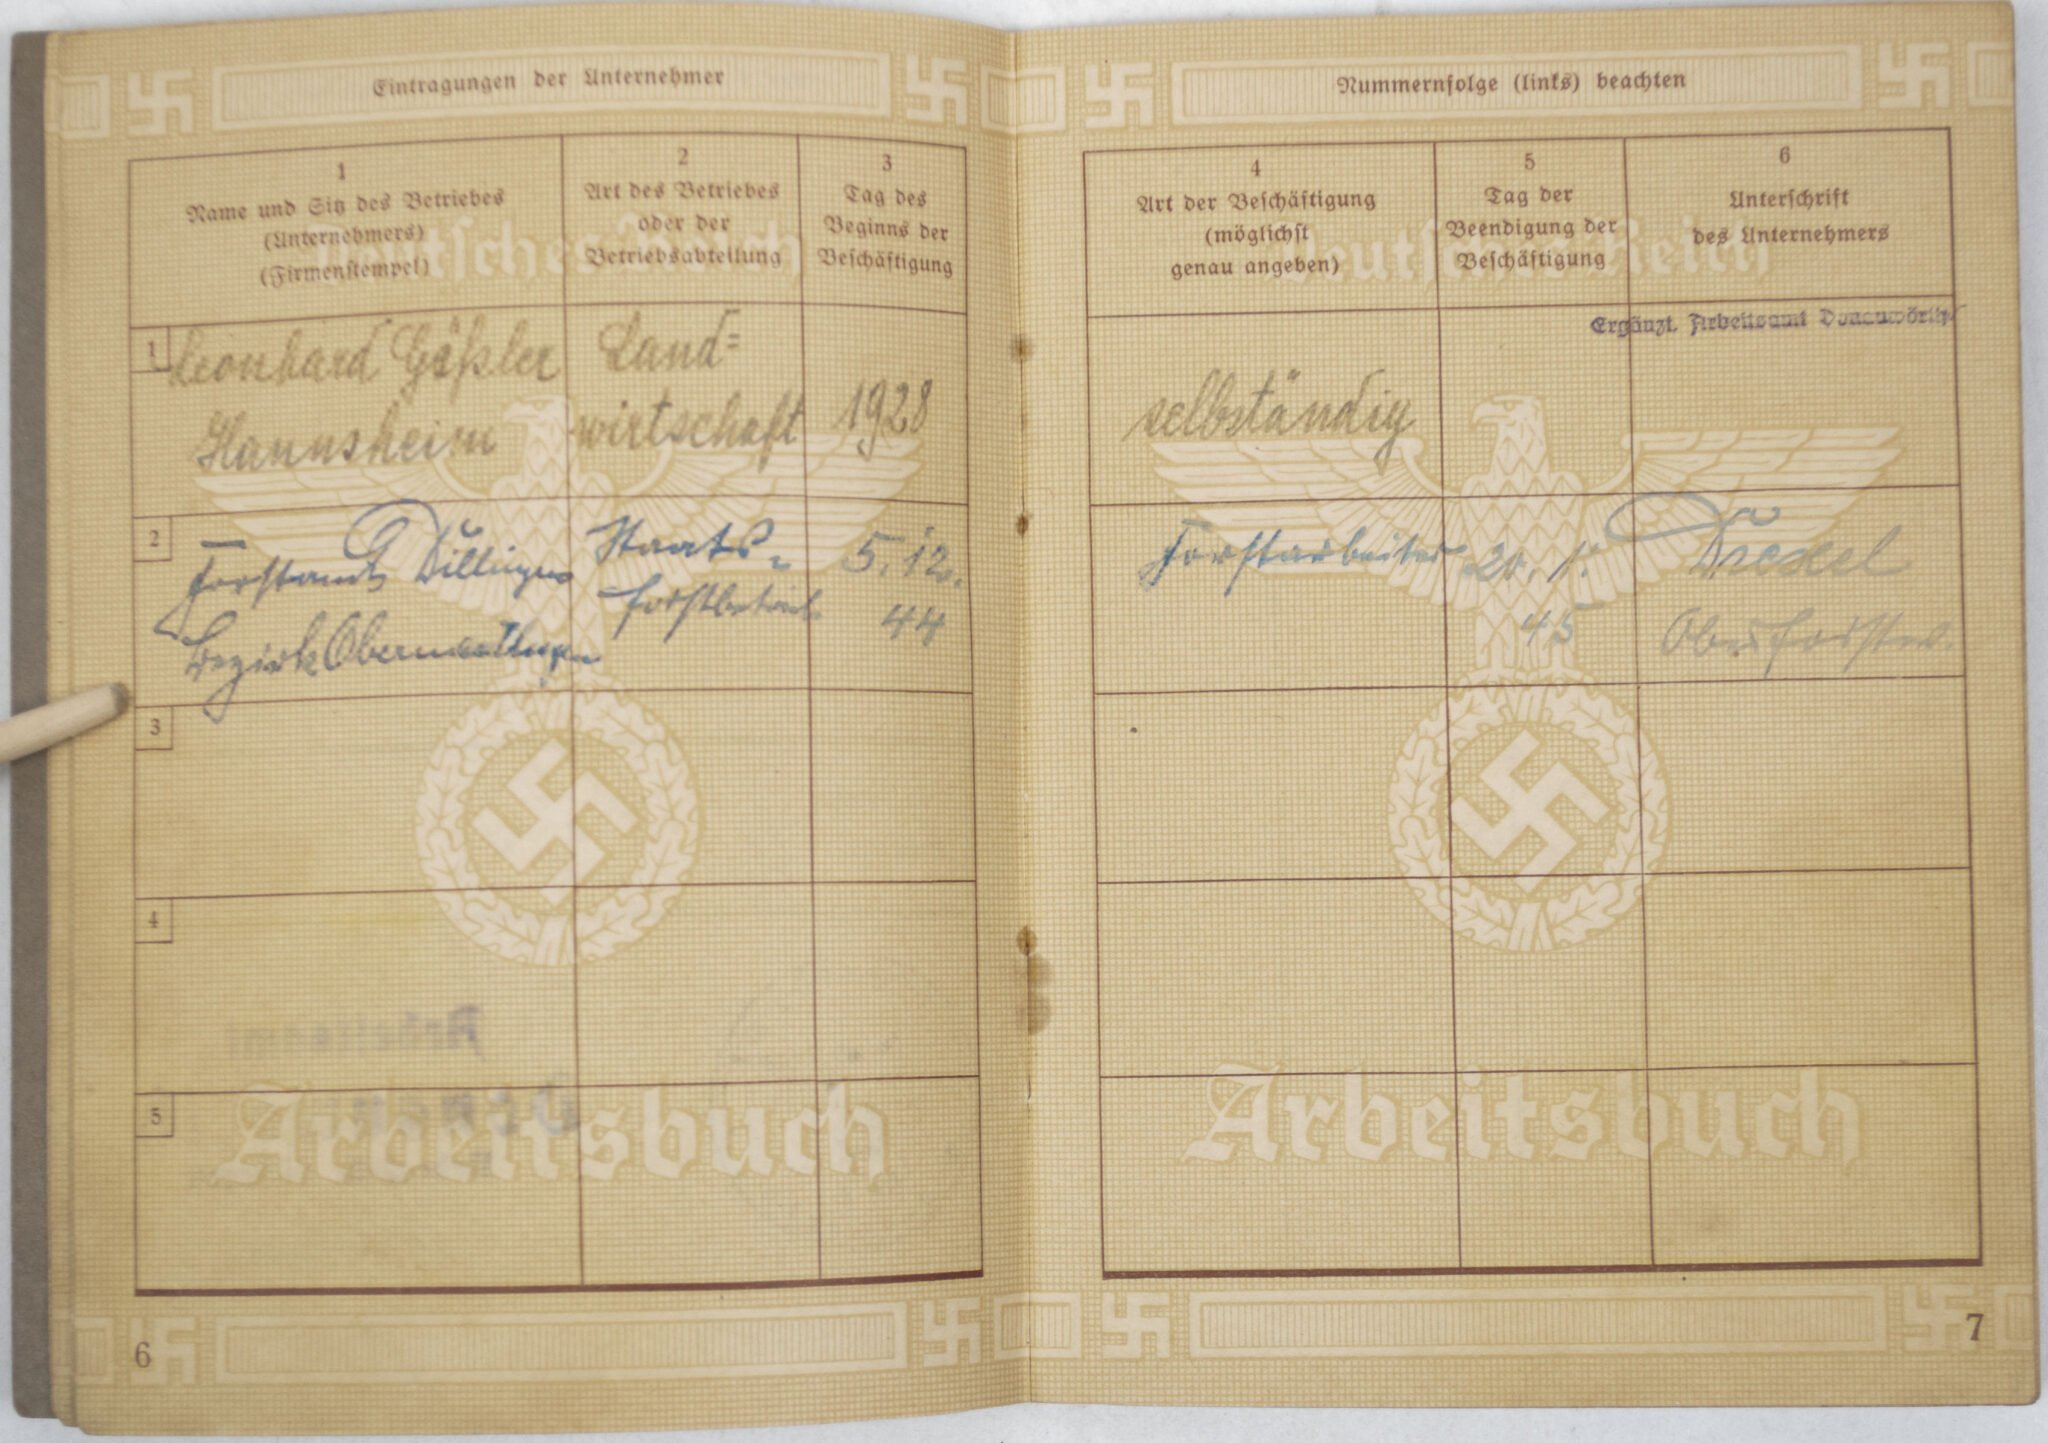 Eintragungen der Unternehmer
1
Name und Sitz des Betriebes
(Unternehmers)
(Firmenstempel)
2
Art des Betriebes
oder der
Betriebsabteilung
3
Tag des
Beginns der
Beschäftigung
1
Leonhard Gäßler
Land=
wirtschaft
1928
2
Forstamt Dillingen
Bezirk
Staats-
forstbetrieb
5. 12.
44
3
4
5
Deutsches Reich
Arbeitsbuch
6
Nummernfolge (links) beachten
4
Art der Beschäftigung
(möglichst
genau angeben)
5
Tag der
Beendigung der
Beschäftigung
6
Unterschrift
des Unternehmers
Ergänzt. Arbeitsamt Donauwörth
selbständig
Forstarbeiter
45
Drexel
Oberförster
Deutsches Reich
Arbeitsbuch
7